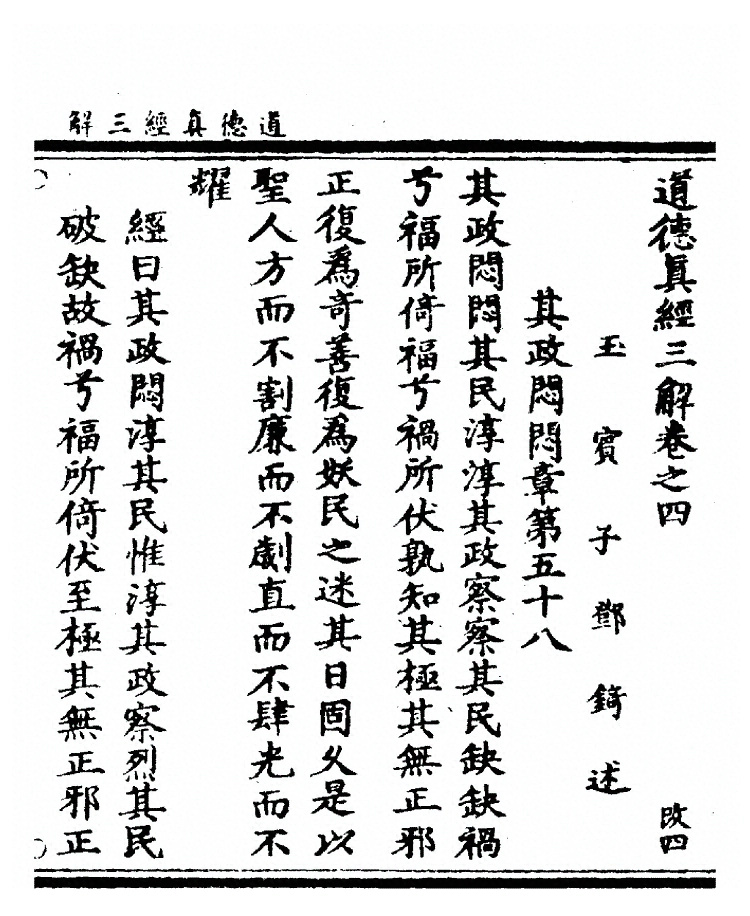 道德真經三解
道德真經三解卷之四 改四
玉賓子鄧錡述
其政悶悶章第五十八
其政悶悶其民淳淳其政察察其民缺缺禍
兮福所倚福兮禍所伏孰知其極其無正邪
正復為奇善復為妖民之迷其日固久是以
聖人方而不割廉而不劌直而不肆光而不
耀
經曰其政悶淳其民惟淳其政察烈其民
破缺故禍兮福所倚伏至極其無正邪正